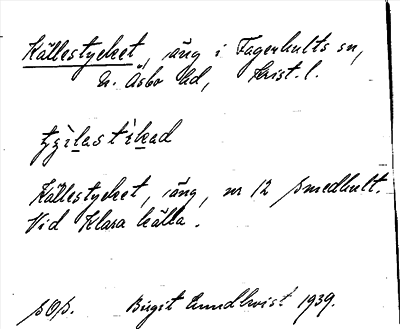 Källestycket, äng i Fagerhults sn,
N. Åsbo hd, Krist. l.
Källestycket, äng, nr 12 Smedhult.
Vid Klara källa.
Birgit Lundkvist 1939.